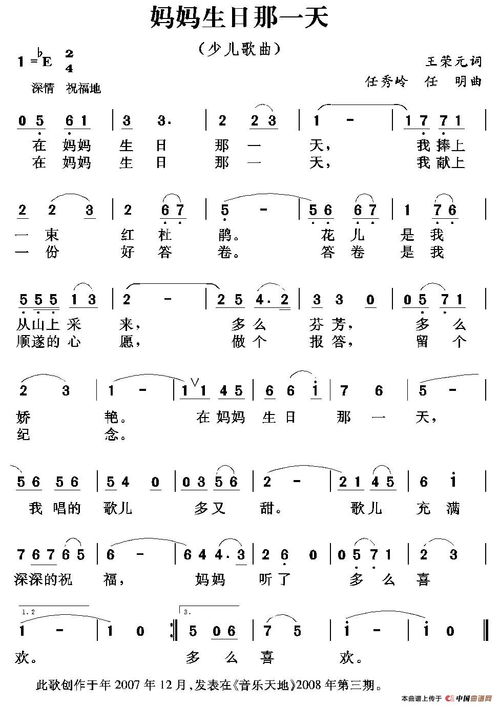 妈妈生日那一天
（少儿歌曲）
1=♭E 2/4
王荣元词
深情 祝福地
任秀岭 任 明曲
0 5 6 1 | 3 3. | 2 2 3 | 1 - | 1 7 7 1 |
在 妈妈 生 日 那 一 天， 我 捧上
在 妈妈 生 日 那 一 天， 我 献上
2 2 3 | 2 6 7 | 5 - | 5 6 7 | 1 7 6 |
一 束 红 杜 鹃。 花 儿 是 我
一 份 好 答 卷。 答 卷 是 我
5 5 5 1 3 | 2 - | 2 5 4. 2 | 3 3 0 | 0 5 7 1 |
从山上 采 来， 多 么 芬 芳， 多 么
顺遂的 心 愿， 做 个 报 答， 留 个
2 3 | 1 - | 1 1 4 5 | 6 6 i | 7 6 | 5 - |
娇 艳。 在 妈妈 生 日 那 一 天，
纪 念。
5 6 5 6 | 5 4 0 | 0 3 5 6 | 2 - | 2 1 4 5 | 6 i |
我 唱的 歌儿 多 又 甜。 歌儿 充 满
7 6 7 6 5 | 5 - | 6 4 4. 3 | 2 6 | 0 5 7 1 | 3 2 |
深深的 祝 福， 妈妈 听 了 多 么 喜
1.2 3.
1 - | 1 0 :| 5 0 6 | 7 6 | i - | i - ‖
欢。 多 么 喜 欢。
此歌创作于年2007年12月，发表在《音乐天地》2008年第三期。
本曲谱上传于 中国曲谱网